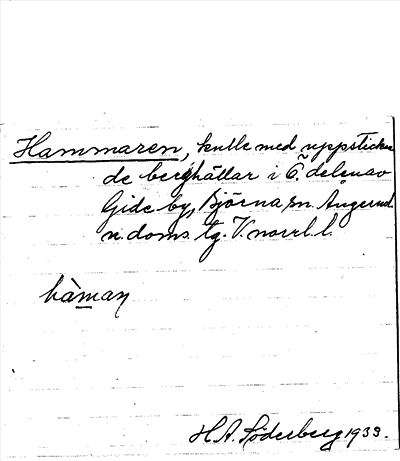 Hammaren, kulle med uppsticken
de berghällar i Ö. delen av
Gide by, Björna sn. Ångerml.
n. doms. tg. V.norrl. l.
hàman
H. A. Söderberg 1933.